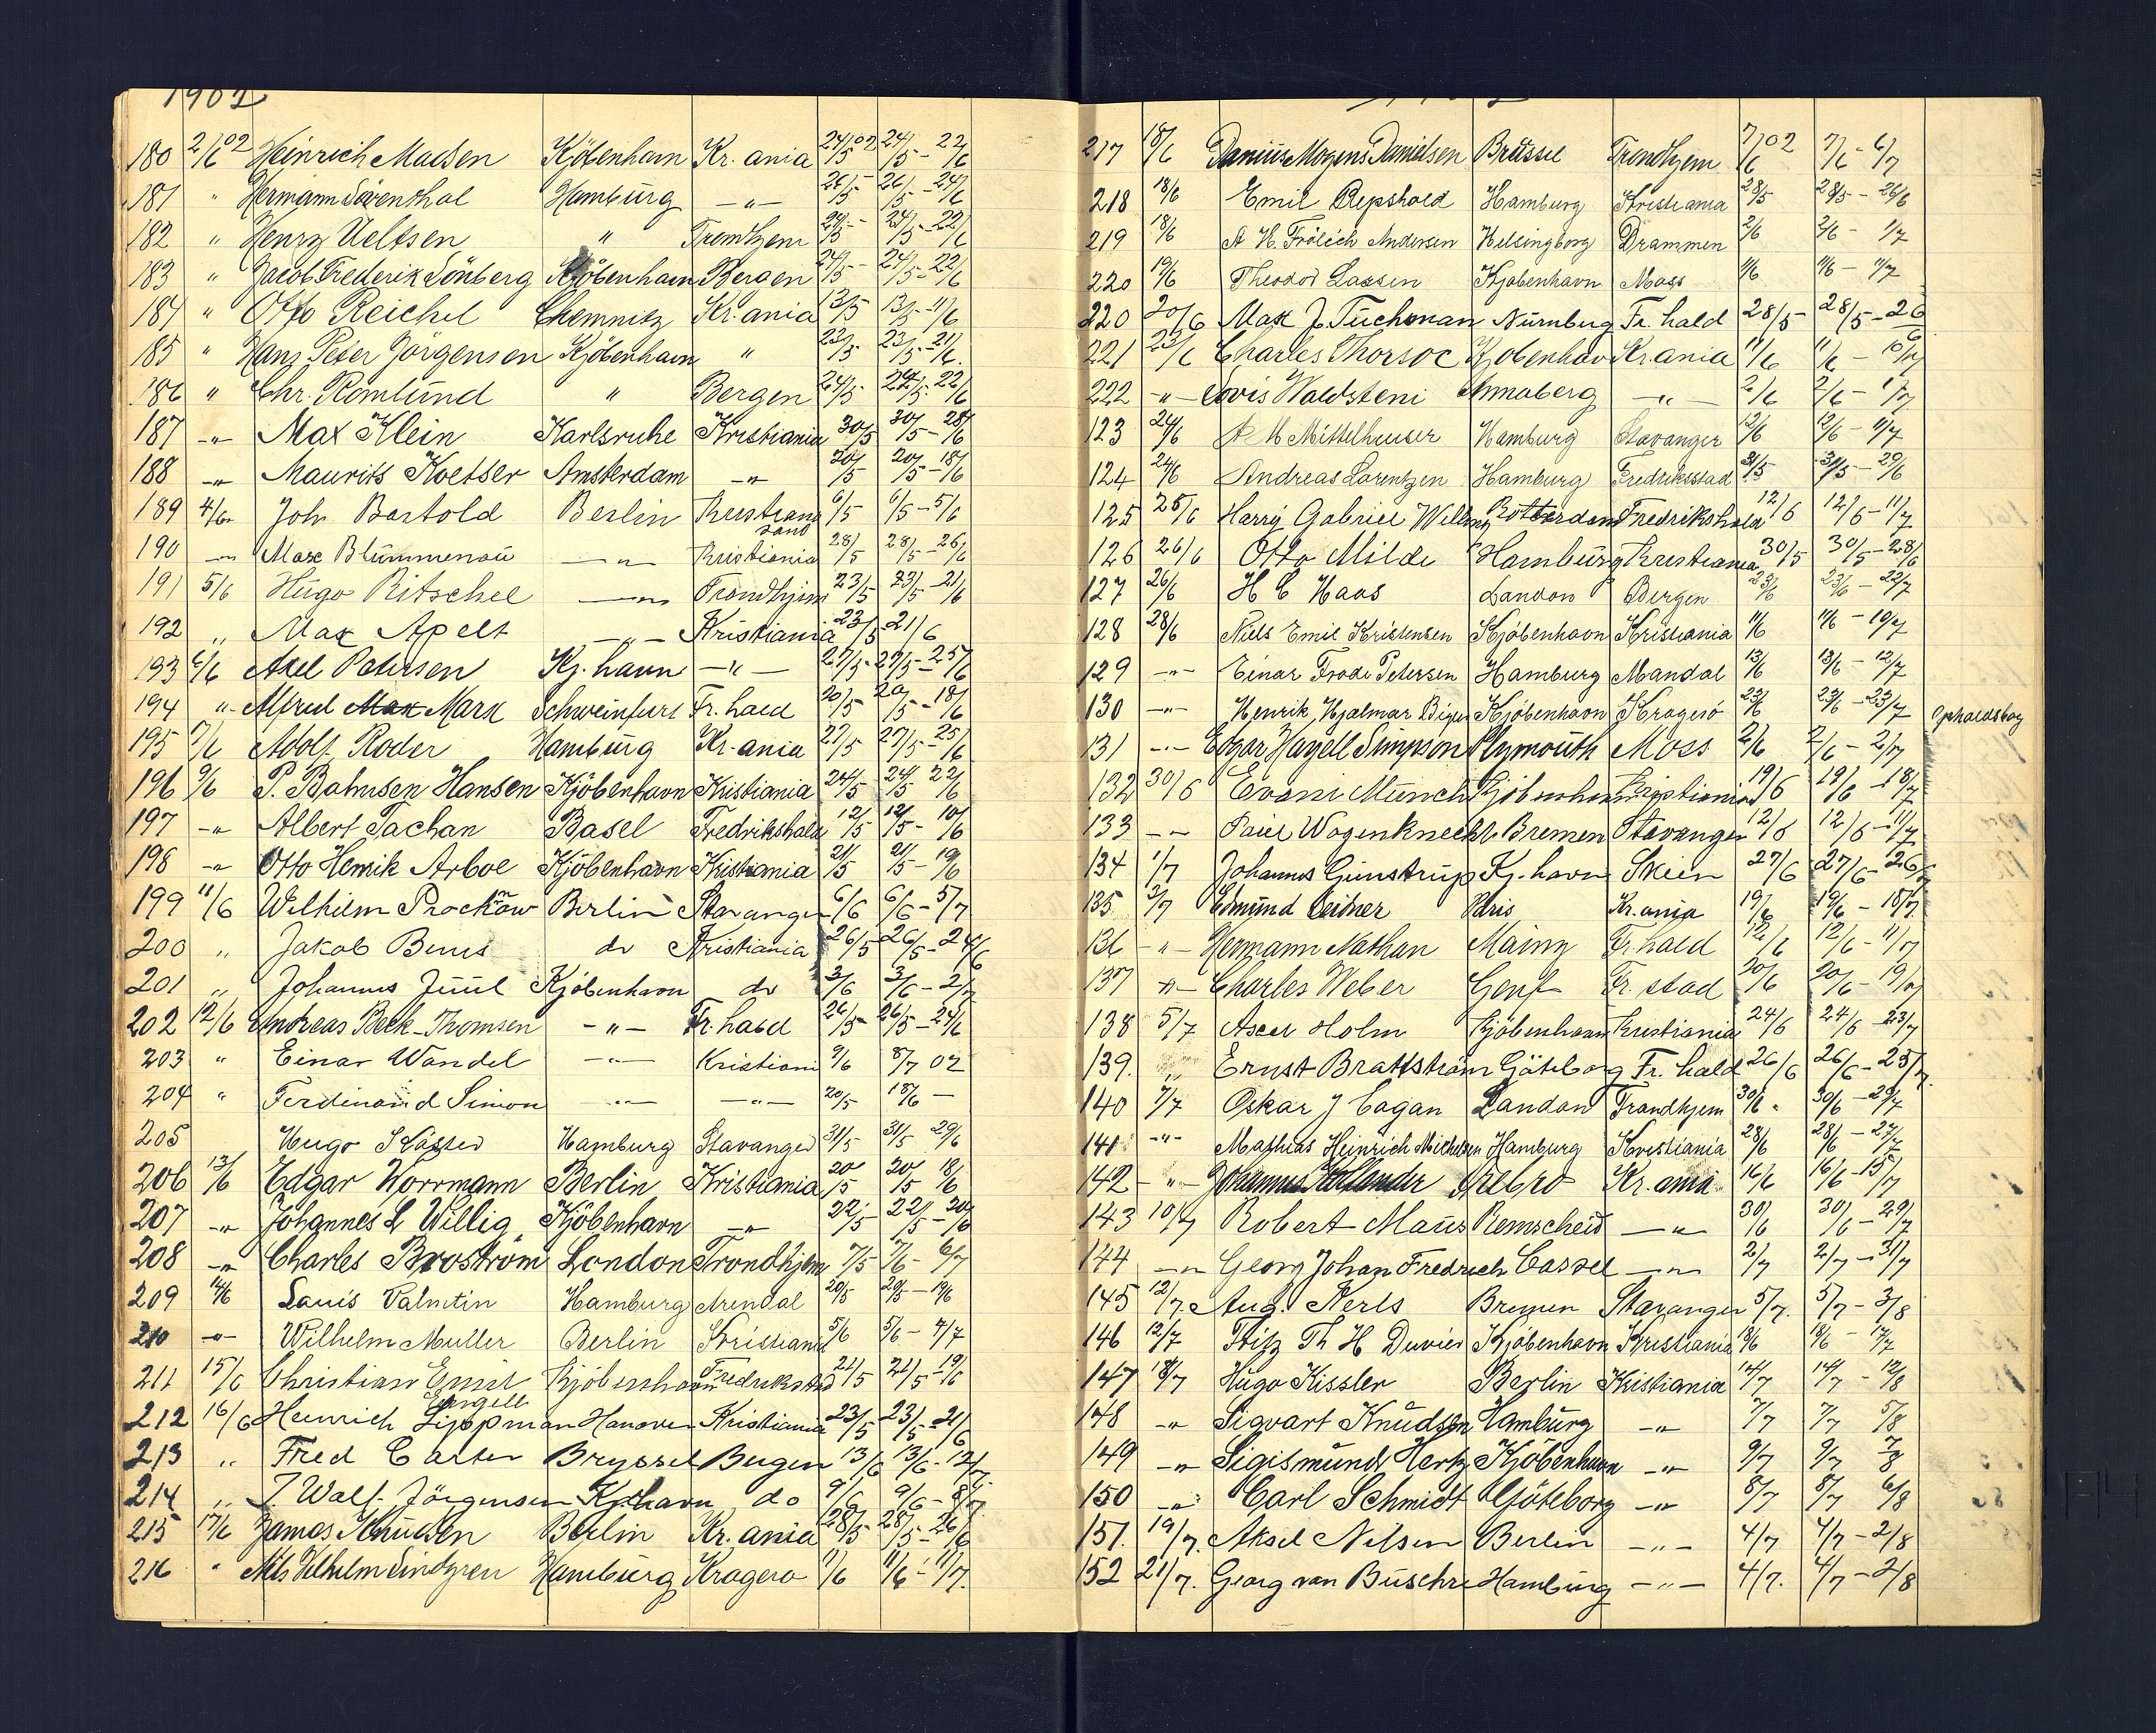 1902
180 2/6 02 Heinrich Madsen Kjöbenhavn Kr. ania 24/5 02 24/5 - 22/6
181 " Hermann Hamburg -"- 26/5 26/5 - 24/6
182 " Henry Ueltsen " Trondhjem 24/5 - 24/5 - 22/6
183 " Jacob Frederik Lönberg Kjöbenhavn Bergen 24/5 - 24/5 - 22/6
184 " Otto Reichel Chemnitz Kr. ania 13/5 13/5 - 11/6
185 " Hans Peter Jörgensen Kjöbenhavn " 23/5 - 23/5 - 21/6
186 " Chr. Romlund " Bergen 24/5 - 24/5 - 22/6
187 -"- Max Klein Karlsruhe Kristiania 30/5 30/5 - 28/6
188 -"- Maurits Koetser Amsterdam -"- 20/5 20/5 - 18/6
189 4/6 Joh Bartold Berlin Kristiansand 6/5 6/5 - 5/6
190 -"- Max Blümmenau -"- Kristiania 28/5 28/5 - 26/6
191 5/6 Hugo Ritschel -"- Trondhjem 23/5 23/5 - 21/6
192 " Max Apelt -"- Kristiania 23/5 21/6
193 6/6 Axel Petersen Kj. havn -"- 27/5 - 27/5 - 25/6
194 "- Alfred Max Marx Schweinfurt Fr. hald 20/5 20/5 - 18/6
195 7/6 Adolf Roder Hamburg Kr. ania 27/5 27/5 - 25/6
196 9/6 P. Bahnsen Hansen Kjöbenhavn Kristiania 24/5 24/5 22/6
197 -"- Albert Tachan Basel Fredrikshald 12/5 12/5 - 10/6
198 -"- Otto Henrik Arboe Kjöbenhavn Kristiania 21/5 21/5 - 19/6
199 11/6 Wilhelm Procknow Berlin Stavanger 6/6 6/6 - 5/7
200 " Jakob do Kristiania 26/5 26/5 - 24/6
201 " Johannes Juul Kjöbenhavn do 3/6 3/6 - 2/7
202 12/6 Andreas Beck-Thomsen -"- Fr. hald 26/5 - 26/5 - 24/6
203 " Einar Wandel -"- Kristiani 9/6 8/7 02
204 " Ferdinand Simon -"- -"- 20/5 18/6 -
205 Hugo Hamburg Stavanger 31/5 31/5 29/6
206 13/6 Edgar Worrmann Berlin Kristiania 20/5 20/5 18/6
207 -"- Johannes L Willig Kjöbenhavn -"- 22/5 - 22/5 - 20/6
208 -"- Charles Broström London Trondhjem 7/5 7/6 - 6/7
209 14/6 Louis Valentin Hamburg Arendal 20/5 20/5 - 19/6
210 -"- Wilhelm Muller Berlin Kristiania 5/6 5/6 - 4/7
211 15/6 Christian Emil Engell Kjöbenhavn Fredrikstad 21/5 21/5 - 19/6
212 16/6 Heinrich Lippman Hanover Kristiania 23/5 23/5 - 21/6
213 " Fred Carter Bryssel Bergen 13/6 13/6 - 12/7
214 " J. Walf. Jörgensen Kjøhavn do 9/6 9/6 - 8/7
215 17/6 James Knudsen Berlin Kr. ania 28/5 - 28/5 - 26/6
216 " Nils Vilhelm Lindgren Hamburg Kragero 11/6 11/6 - 11/7.
217 18/6 Danius Mogens Danielsen Brüssel Trondhjem 7/6 02 7/6 - 6/7
218 18/6 Emil Repshold Hamburg Kristiania 28/5 28/5 - 26/6
219 18/6 A H. Frölich Andersen Helsingborg Drammen 2/6 2/6 - 1/7
220 19/6 Theodor Lassen Kjøbenhavn Moss 11/6 11/6 - 11/7
220 20/6 Max J. Tuchman Nürnberg Fr. hald 28/5 - 28/5 - 26/6
221 23/6 Charles Thorsoe Kjøbenhavn Kr. ania 11/6 11/6 - 10/7
222 -"- Lovis Waldstein Annaberg -"- 2/6 2/6 - 1/7
123 24/6 A M Mittelheuser Hamburg Stavanger 12/6 12/6 - 11/7
124 24/6 Andreas Lorentzen Hamburg Fredriksstad 31/5 31/5 - 29/6
125 25/6 Harry Gabriel Rotterdam Fredrikshald 12/6 12/6 - 11/7
126 26/6 Otto Milde Hamburg Kristiania 30/5 30/5 - 28/6
127 26/6 H C Haas London Bergen 23/6 23/6 - 22/7
128 28/6 Niels Emil Kristensen Kjöbenhavn Kristiania 11/6 11/6 - 10/7
129 -"- Einar Frode Petersen Hamburg Mandal 13/6 13/6 - 12/7
130 -"- Henrik Hjalmar Kjøbenhavn Kragerö 23/6 23/6 - 23/7 Opholdsbog
131 -"- Edgar Hayell Simpson Plymouth Moss 2/6 2/6 - 2/7
132 30/6 Munch Kjöbenhavn Kristiania 19/6 19/6 - 18/7
133 -"- Paul Wagenknecht Bremen Stavanger 12/6 12/6 - 11/7
134 1/7 Johannes Günstrup Kj. havn Skien 27/6 27/6 - 26/7
135 3/7 Edmund Leitner Paris Kr. ania 19/6 19/6 - 18/7
136 -"- Hermann Nathan Mainz Fr. hald 12/6 12/6 - 11/7
137 -"- Charles Weber Genf Fr. stad 20/6 20/6 - 19/7
138 5/7 Axel Holm Kjöbenhavn Kristiania 24/6 24/6 - 23/7
139. " Ernst Brattström Göteborg Fr. hald 26/6 26/6 - 25/7
140 7/7 Oskar J Cagan London Trondhjem 30/6 30/6 - 29/7
141 -"- Mathias Heinrich Michelsen Hamburg Kristiania 28/6 28/6 - 27/7
142 -"- Johannes Hollander Örebro Kr. ania 16/6 16/6 - 15/7
143 10/7 Robert Maus Remscheid -"- 30/6 30/6 - 29/7
144 -"- Georg Johan Fredrich Cassel -"- 2/7 2/7 - 31/7
145 12/7. Aug. Kerls Bremen Stavanger 5/7. 5/7 - 3/8
146 12/7 Fritz Th H Duvier Kjøbenhavn Kristiania 18/6 18/6 - 17/7
147 18/7 Hugo Kissler Berlin Kristiania 14/7 14/7 - 12/8
148 -"- Sigvart Knudsen Hamburg -"- 7/7 7/7 5/8
149 -"- Sigismund Hertz Kjöbenhavn -"- 9/7 9/7 7/8
150 -"- Carl Schmidt Göteborg -"- 8/7 8/7 6/8
151. 19/7. Aksel Nilsen Berlin -"- 4/7 4/7 - 2/8
152 21/7. Georg van Büschre Hamburg -"- 4/7. 4/7 - 2/8